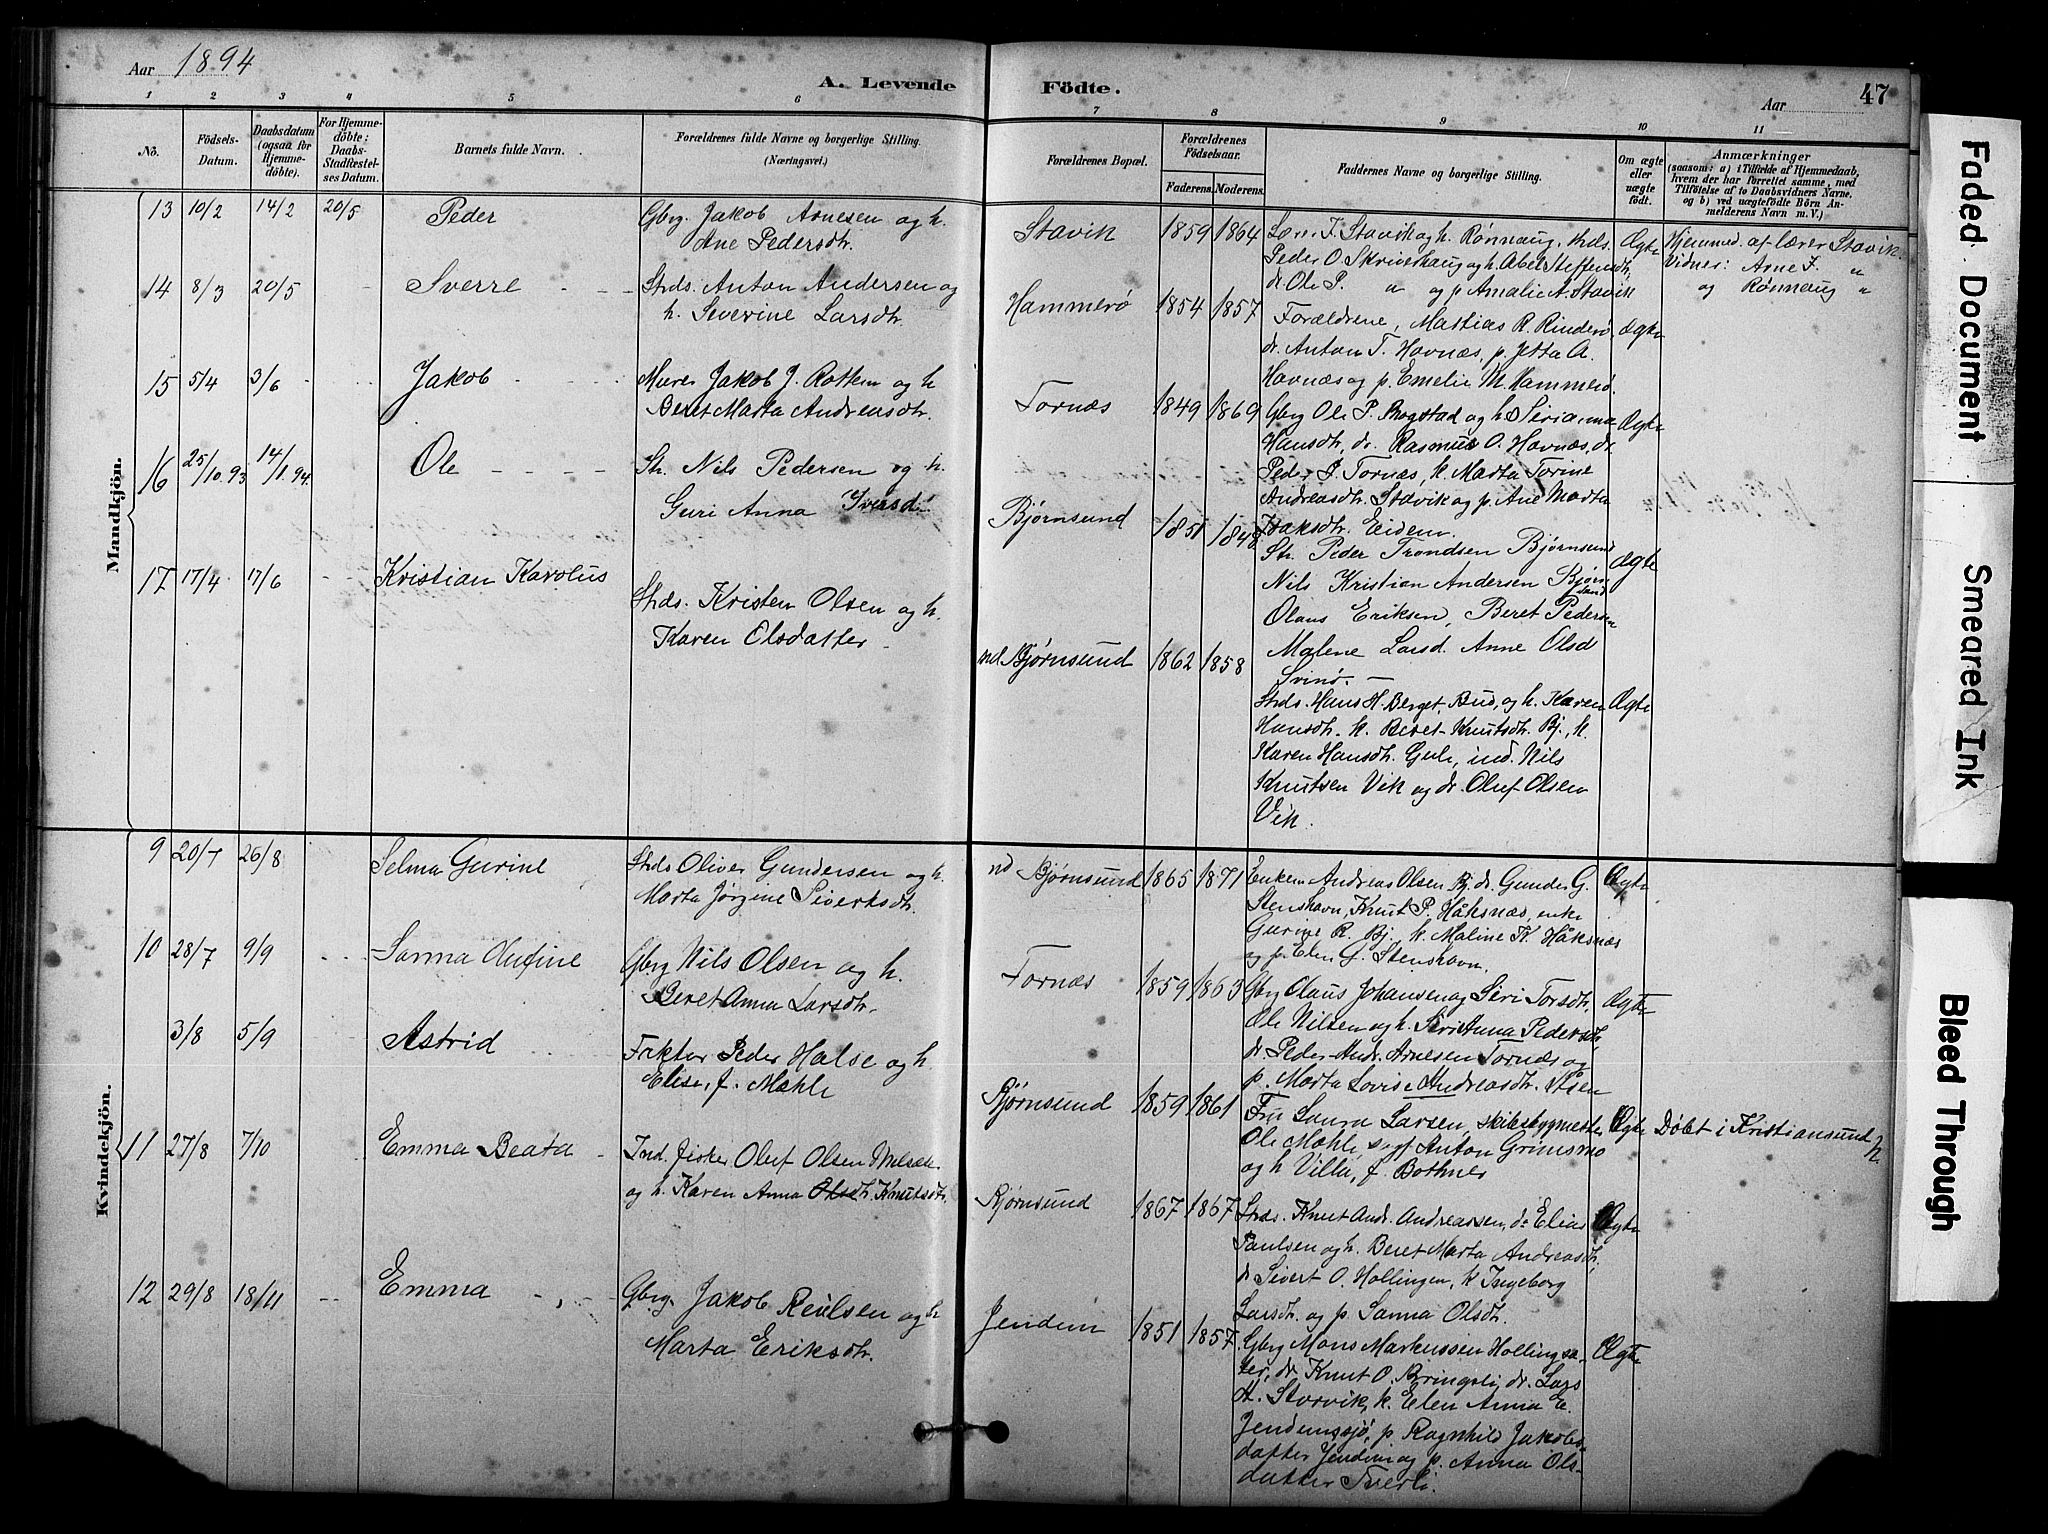 Aar 1894
A. Levende Födte.
Aar 47
1 2 3 4 5 6 7 8 9 10 11
No.
Födsels-
Datum.
Daabsdatum
(ogsaa for
Hjemme-
döbte).
For Hjemme-
döbte:
Daabs-
Stadfæstel-
ses Datum.
Barnets fulde Navn.
Forældrenes fulde Navne og borgerlige Stilling.
(Næringsvei.)
Forældrenes Bopæl.
Forældrenes
Födselsaar.
Faderens. Moderens.
Faddernes Navne og borgerlige Stilling.
Om ægte
eller
uægte
födt.
Anmærkninger
(saasom: a) i Tilfælde af Hjemmedaab,
hvem der har forrettet samme, med
Tilföielse af to Daabsvidners Navne,
og b) ved uægtefödte Börn An-
melderens Navn m. V.)
Mandkjön.
13 10/2 14/2 20/5 Peder
Gbrg. Jakob Arnesen og h.
Ane Pedersdtr.
Stavik 1859 1864
Lærer I. Stavik og h. Rønnaug, Strds.
Peder O. Skriverhaug og h. Abel Steffensdtr,
dr. Ole P. " og p. Amalie A. Stavik
Ægte
Hjemmed. af lærer Stavik.
Vidner: Arne I. "
og Rønnaug "
14 8/3 20/5 - Sverre - - -
Strds. Anton Andersen og
h. Severine Larsdtr.
Hammerø 1854 1857
Forældrene, Mattias R. Rinderø,
dr. Anton T. Hovnæs, p. Jetta A.
Hovnæs og p. Emelie M. Hammerø.
Ægte
15 5/4 3/6 - Jakob - - -
Murer Jakob J. Rotken og h
Beret Marta Andreasdtr.
Tornæs 1849 1869
Gbrg Ole P. Bogstad og h. Serianna
Hansdtr, dr. Rasmus O. Hovnæs, dr.
Peder J. Tornæs, k. Marta Torine
Andreasdtr. Stavik og p. Ane Marta
Isaksdtr. Eidem.
Ægte
16 25/10.93 14/1.94. Ole - - - -
Str. Nils Pedersen og h.
Guri Anna Iversd.
Bjørnsund 1851 1848
Str. Peder Trondsen Bjørnsund
Nils Kristian Andersen Bjørn-
sund
Olaus Eriksen, Beret Pedersen
Malene Larsd. Anne Olsd
Svinø. -
Ægte
17 17/4. 17/6 - - Kristian Karolus
Strds. Kristen Olsen og h.
Karen Olsdatter
Bjørnsund 1862 1858
Strds. Hans H. Berget, Bud, og h. Karen
Hansdtr. k. Beret Knutsdtr. Bj., k.
Karen Hansdtr. Gule, ind. Nils
Knutsen Vik og dr. Oluf Olsen
Vik.
Ægte
Kvindekjön.
9 20/7 26/8 Selma Gurine
Strds Oliver Gundersen og h.
Marta Jørgine Sivertsdtr.
Bjørnsund 1865 1871
Enkem Andreas Olsen Bj. dr. Gunder G.
Stenshavn, Knut P. Håksnæs, enke
Gurine R. Bj. k. Maline K. Håksnæs
og p. Elen G. Stenshavn.
Ægte
10 28/7 9/9 - - - Sanna
Gbrg Nils Olsen og h.
Beret Anna Larsdtr.
Tornæs 1859 1863
Gbrg Olaus Johansen og Seri Torsdtr,
Ole Nilsen og h. Seri Anna Pedersdtr,
dr. Peder Andr. Arnesen Tornæs og
p. Marta Lovise Andreasdtr. Åsen
Ægte
3/8 5/9 Astrid
Faktor Peder Halse og h.
Elise, f. Mæhle
Bjørnsund 1859 1861
Fru Laura Larsen, skibsbygmester
Ole Mæhle, Anton Grimsmo
og h Villa, f. Bothner
Ægte Døbt i Kristiansund
11 27/8 7/10 Emma Beata -
Ind. fisker Oluf Olsen
og h. Karen Anna Olsdtr. Knutsdtr.
Bjørnsund 1867 1867
Strds. Knut Andr. Andreassen, dr Elias
Paulsen og h. Beret Marta Andreasdtr,
dr Sivert O. Hollingen, k Ingeborg
Larsdtr. og p. Sanna Olsdtr.
Ægte
12 29/8 18/11 - - Emma - , -
Gbrg. Jakob Reielsen og h
Marta Eriksdtr.
Jendem 1851 1857
Gbrg Mons Markussen Hollingsæ-
ter, dr. Knut O. Bringsli, dr. Lars
H. Storvik, k. Elen Anna E.
Jendemssjø, p Ragnhild Jakobs-
datter Jendem og p. Anna Ols-
datter Tverli.
Ægte
Faded Document
Smeared Ink
Bleed Through